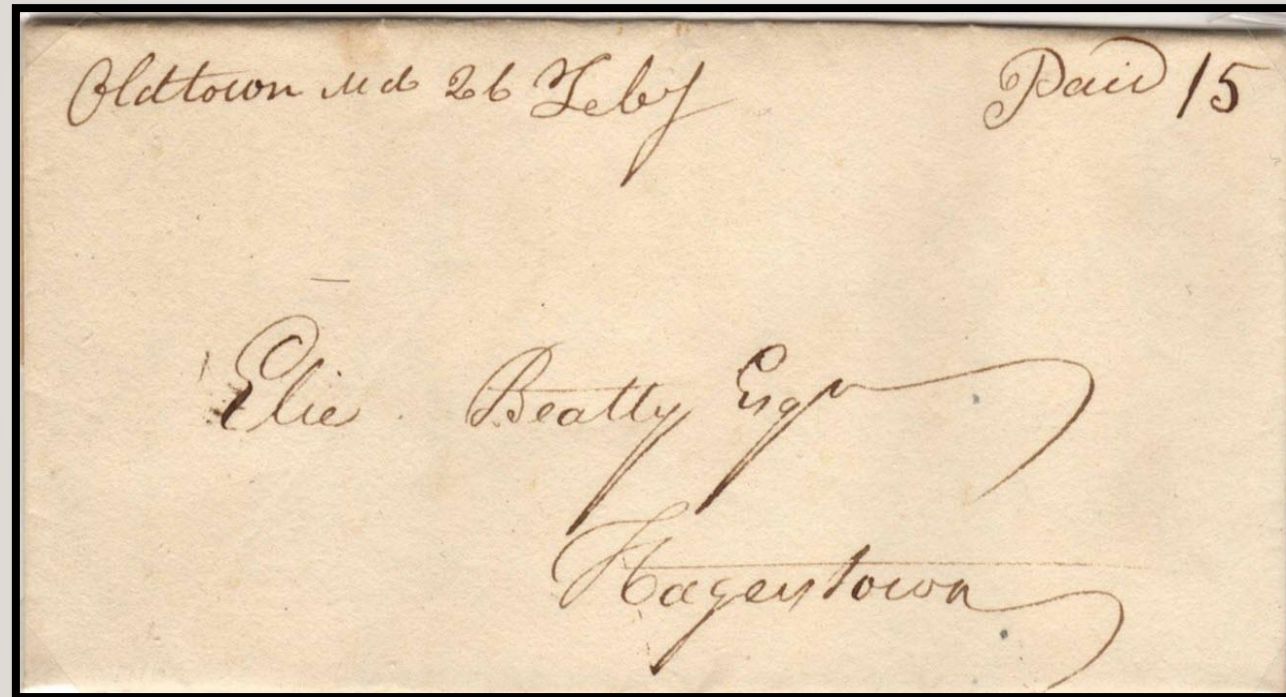 Oldtown Md 26 Feby Paid 15
Elie Beatty Esqr
Hagerstown